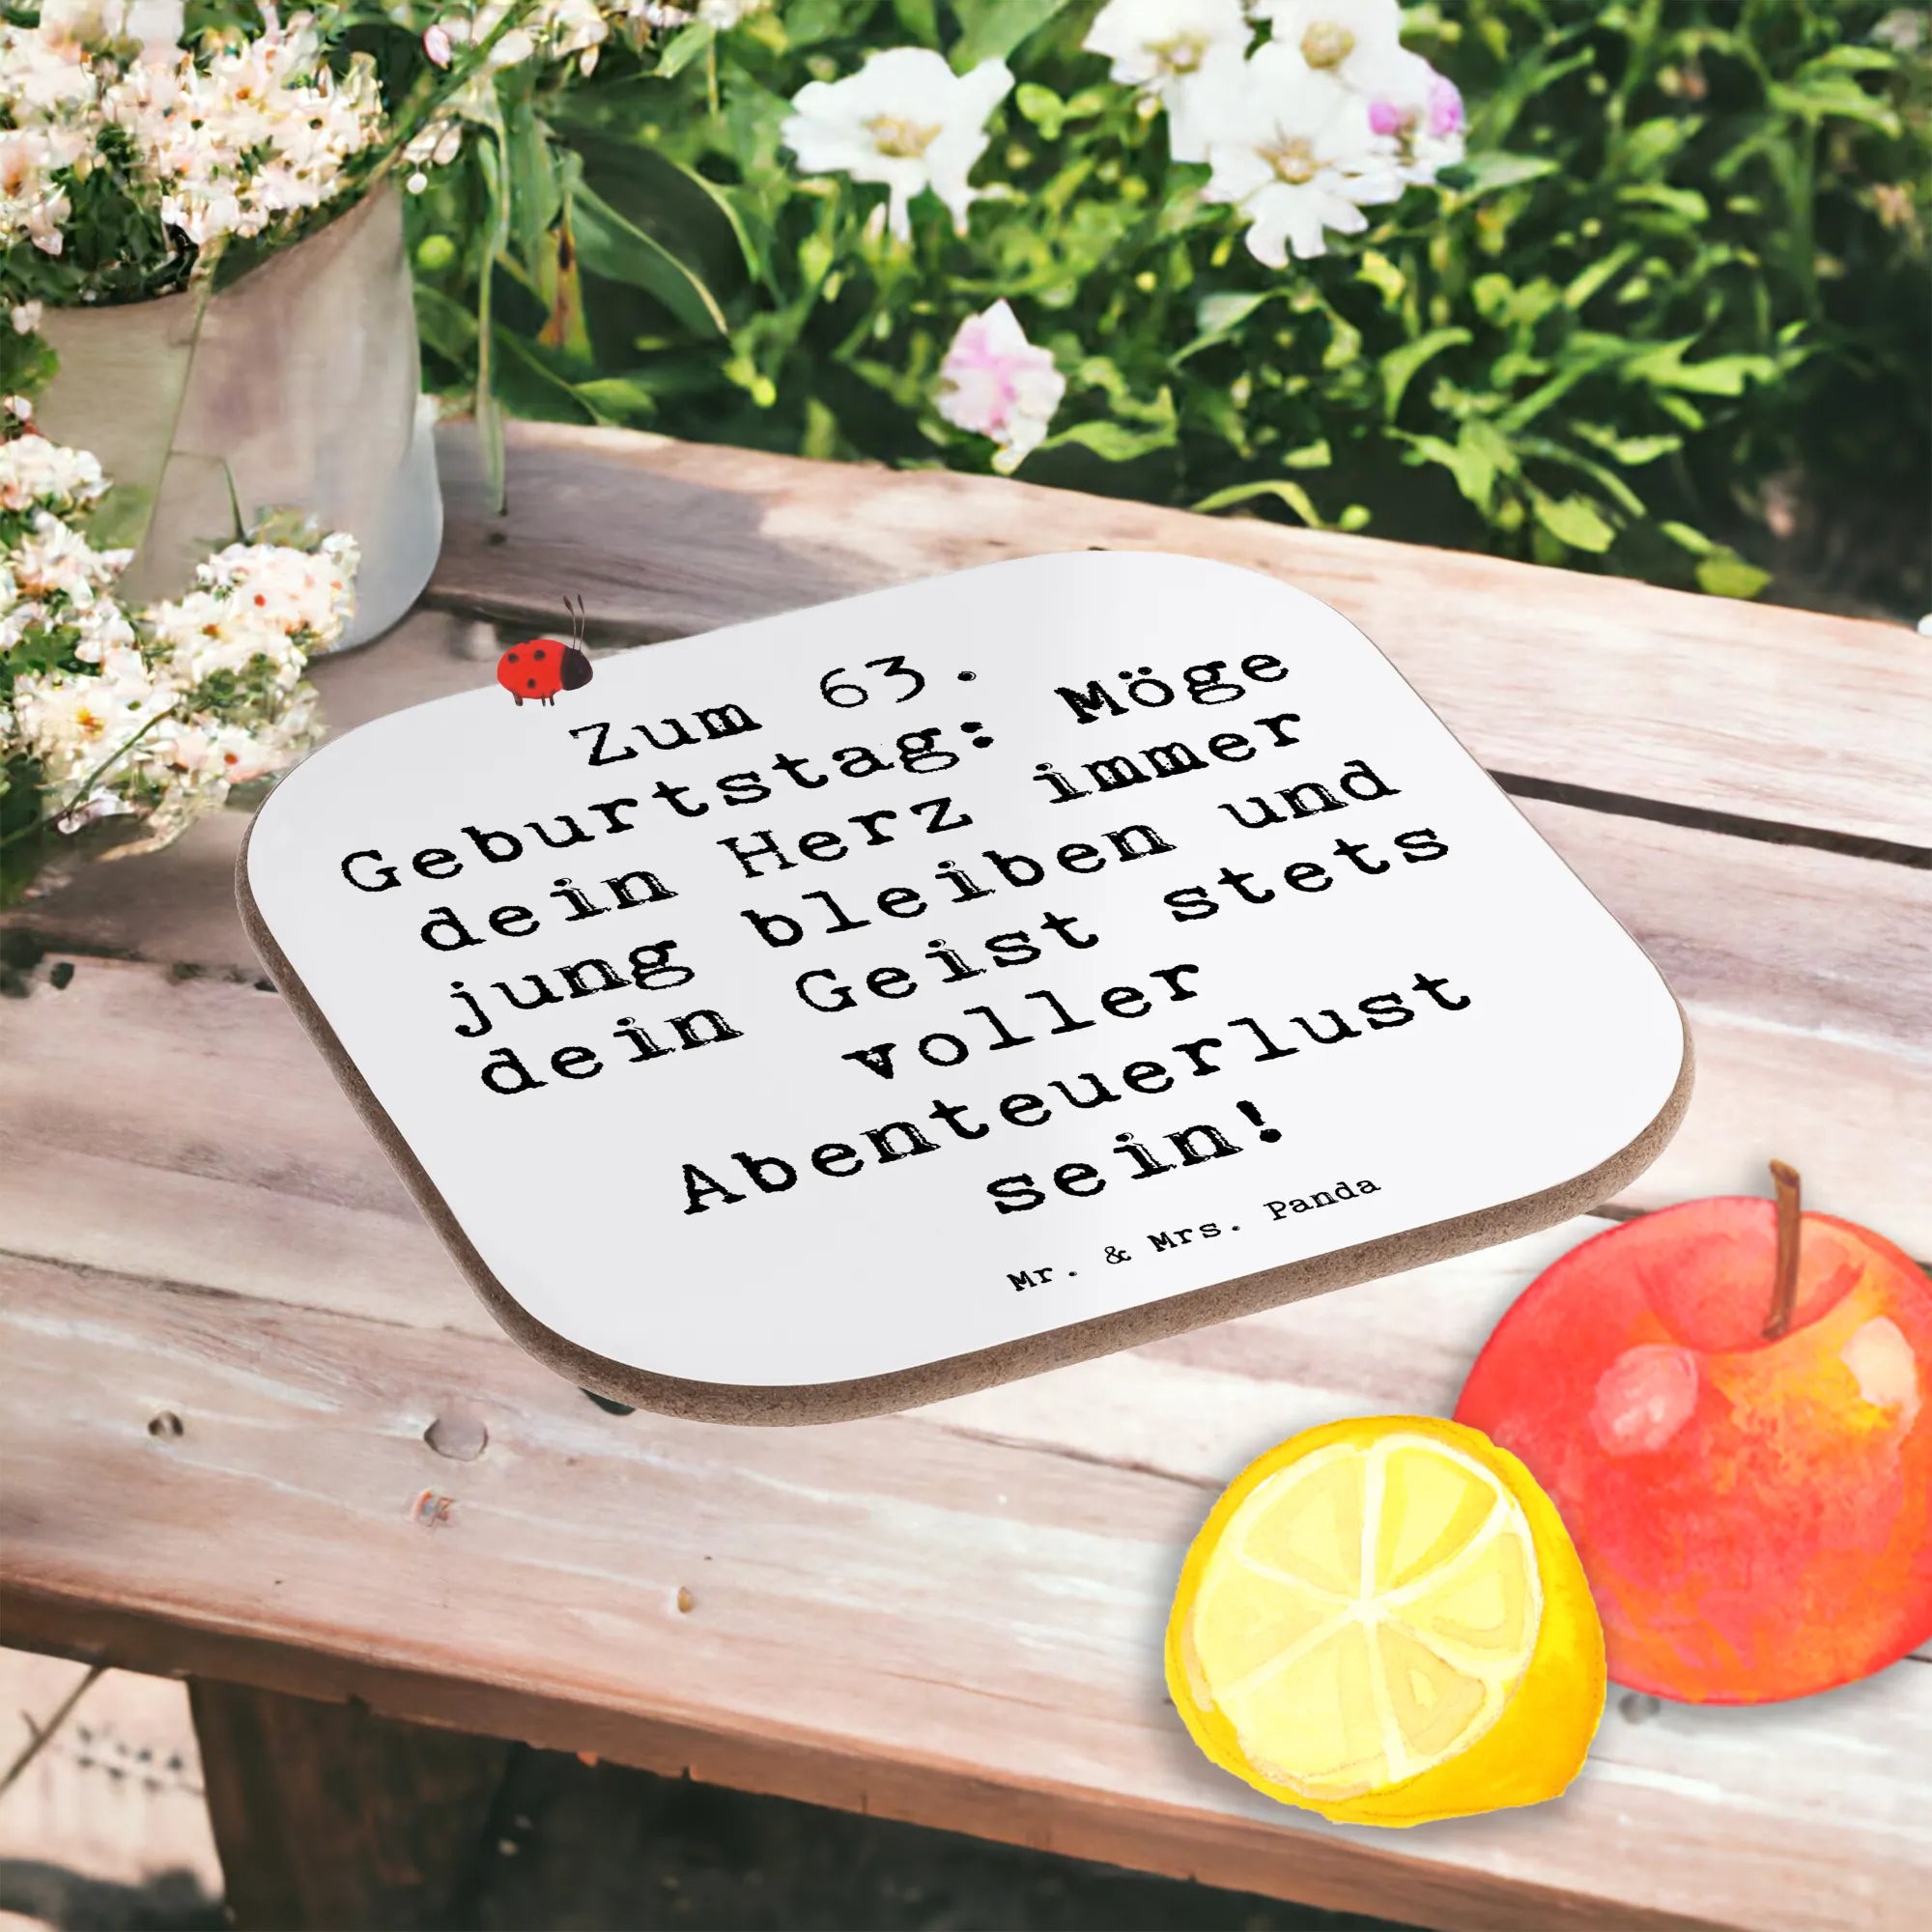 Zum 63.
Geburtstag: Möge
dein Herz immer
jung bleiben und
dein Geist stets
voller
Abenteuerlust
sein!
Mr. & Mrs. Panda